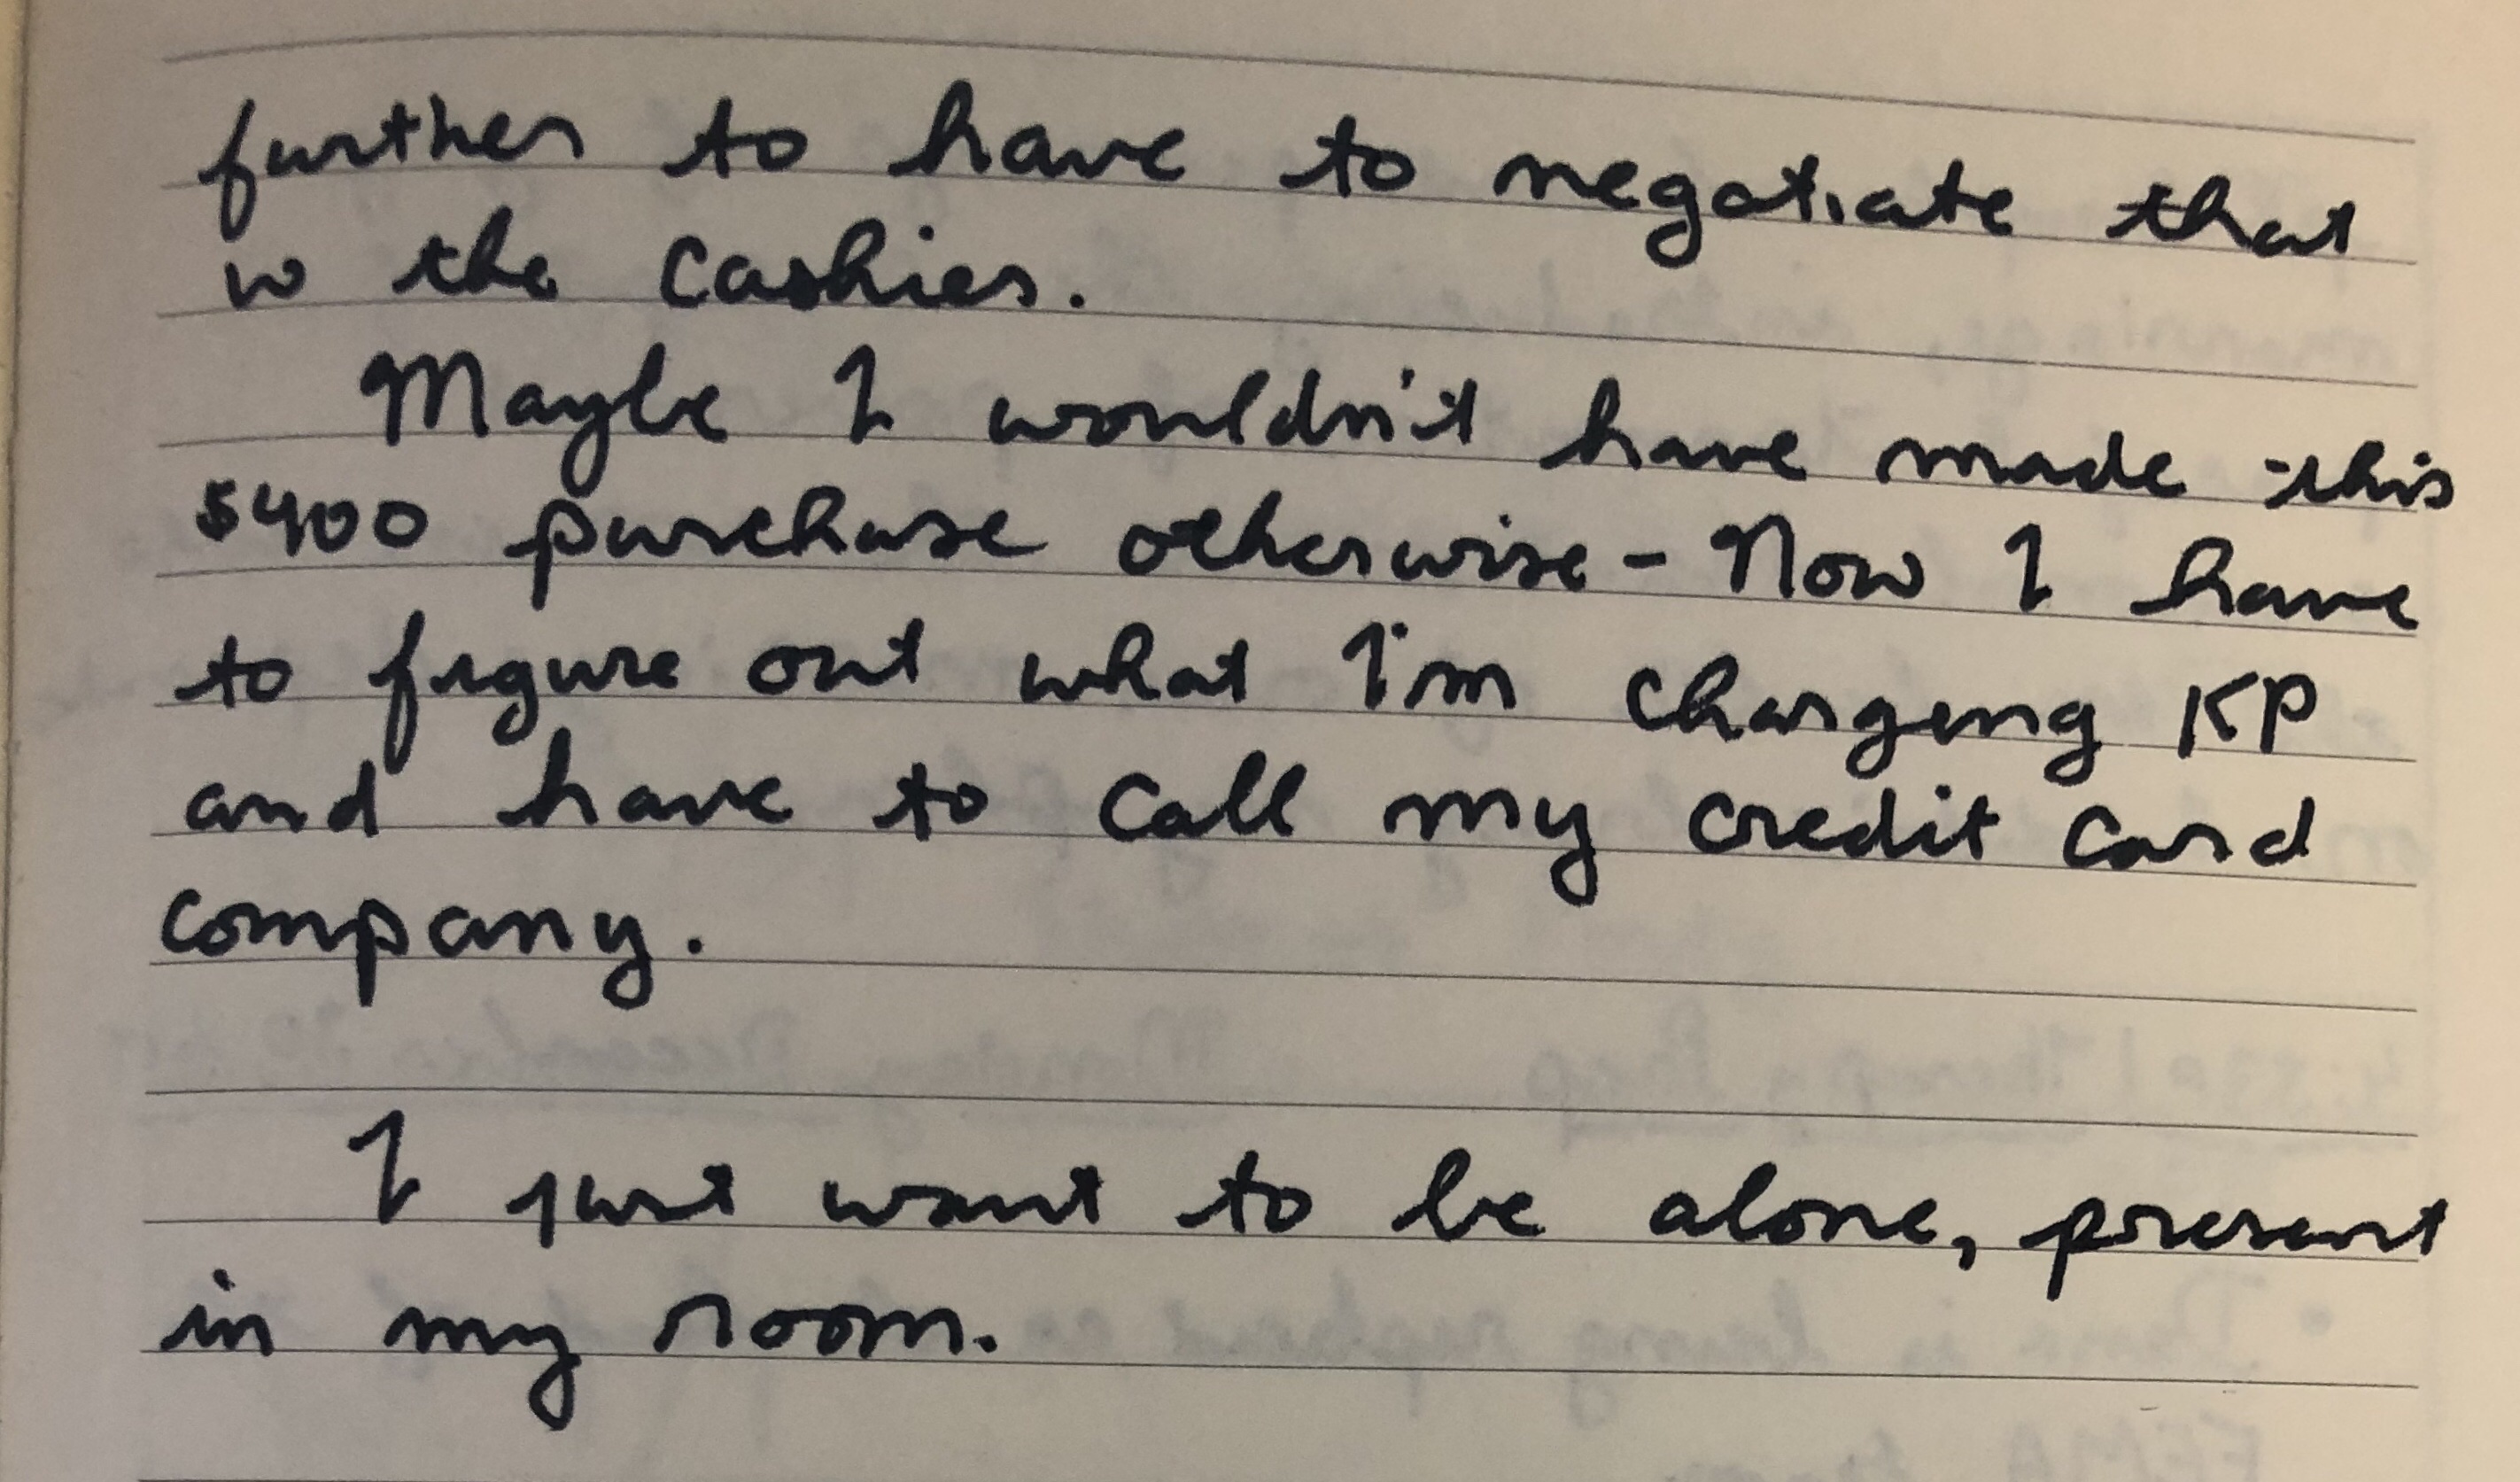 further to have to negotiate that
w the cashier.
Maybe I wouldn't have made this
$400 purchase otherwise - Now I have
to figure out what I'm charging KP
and have to call my credit card
company.
I just want to be alone, present
in my room.